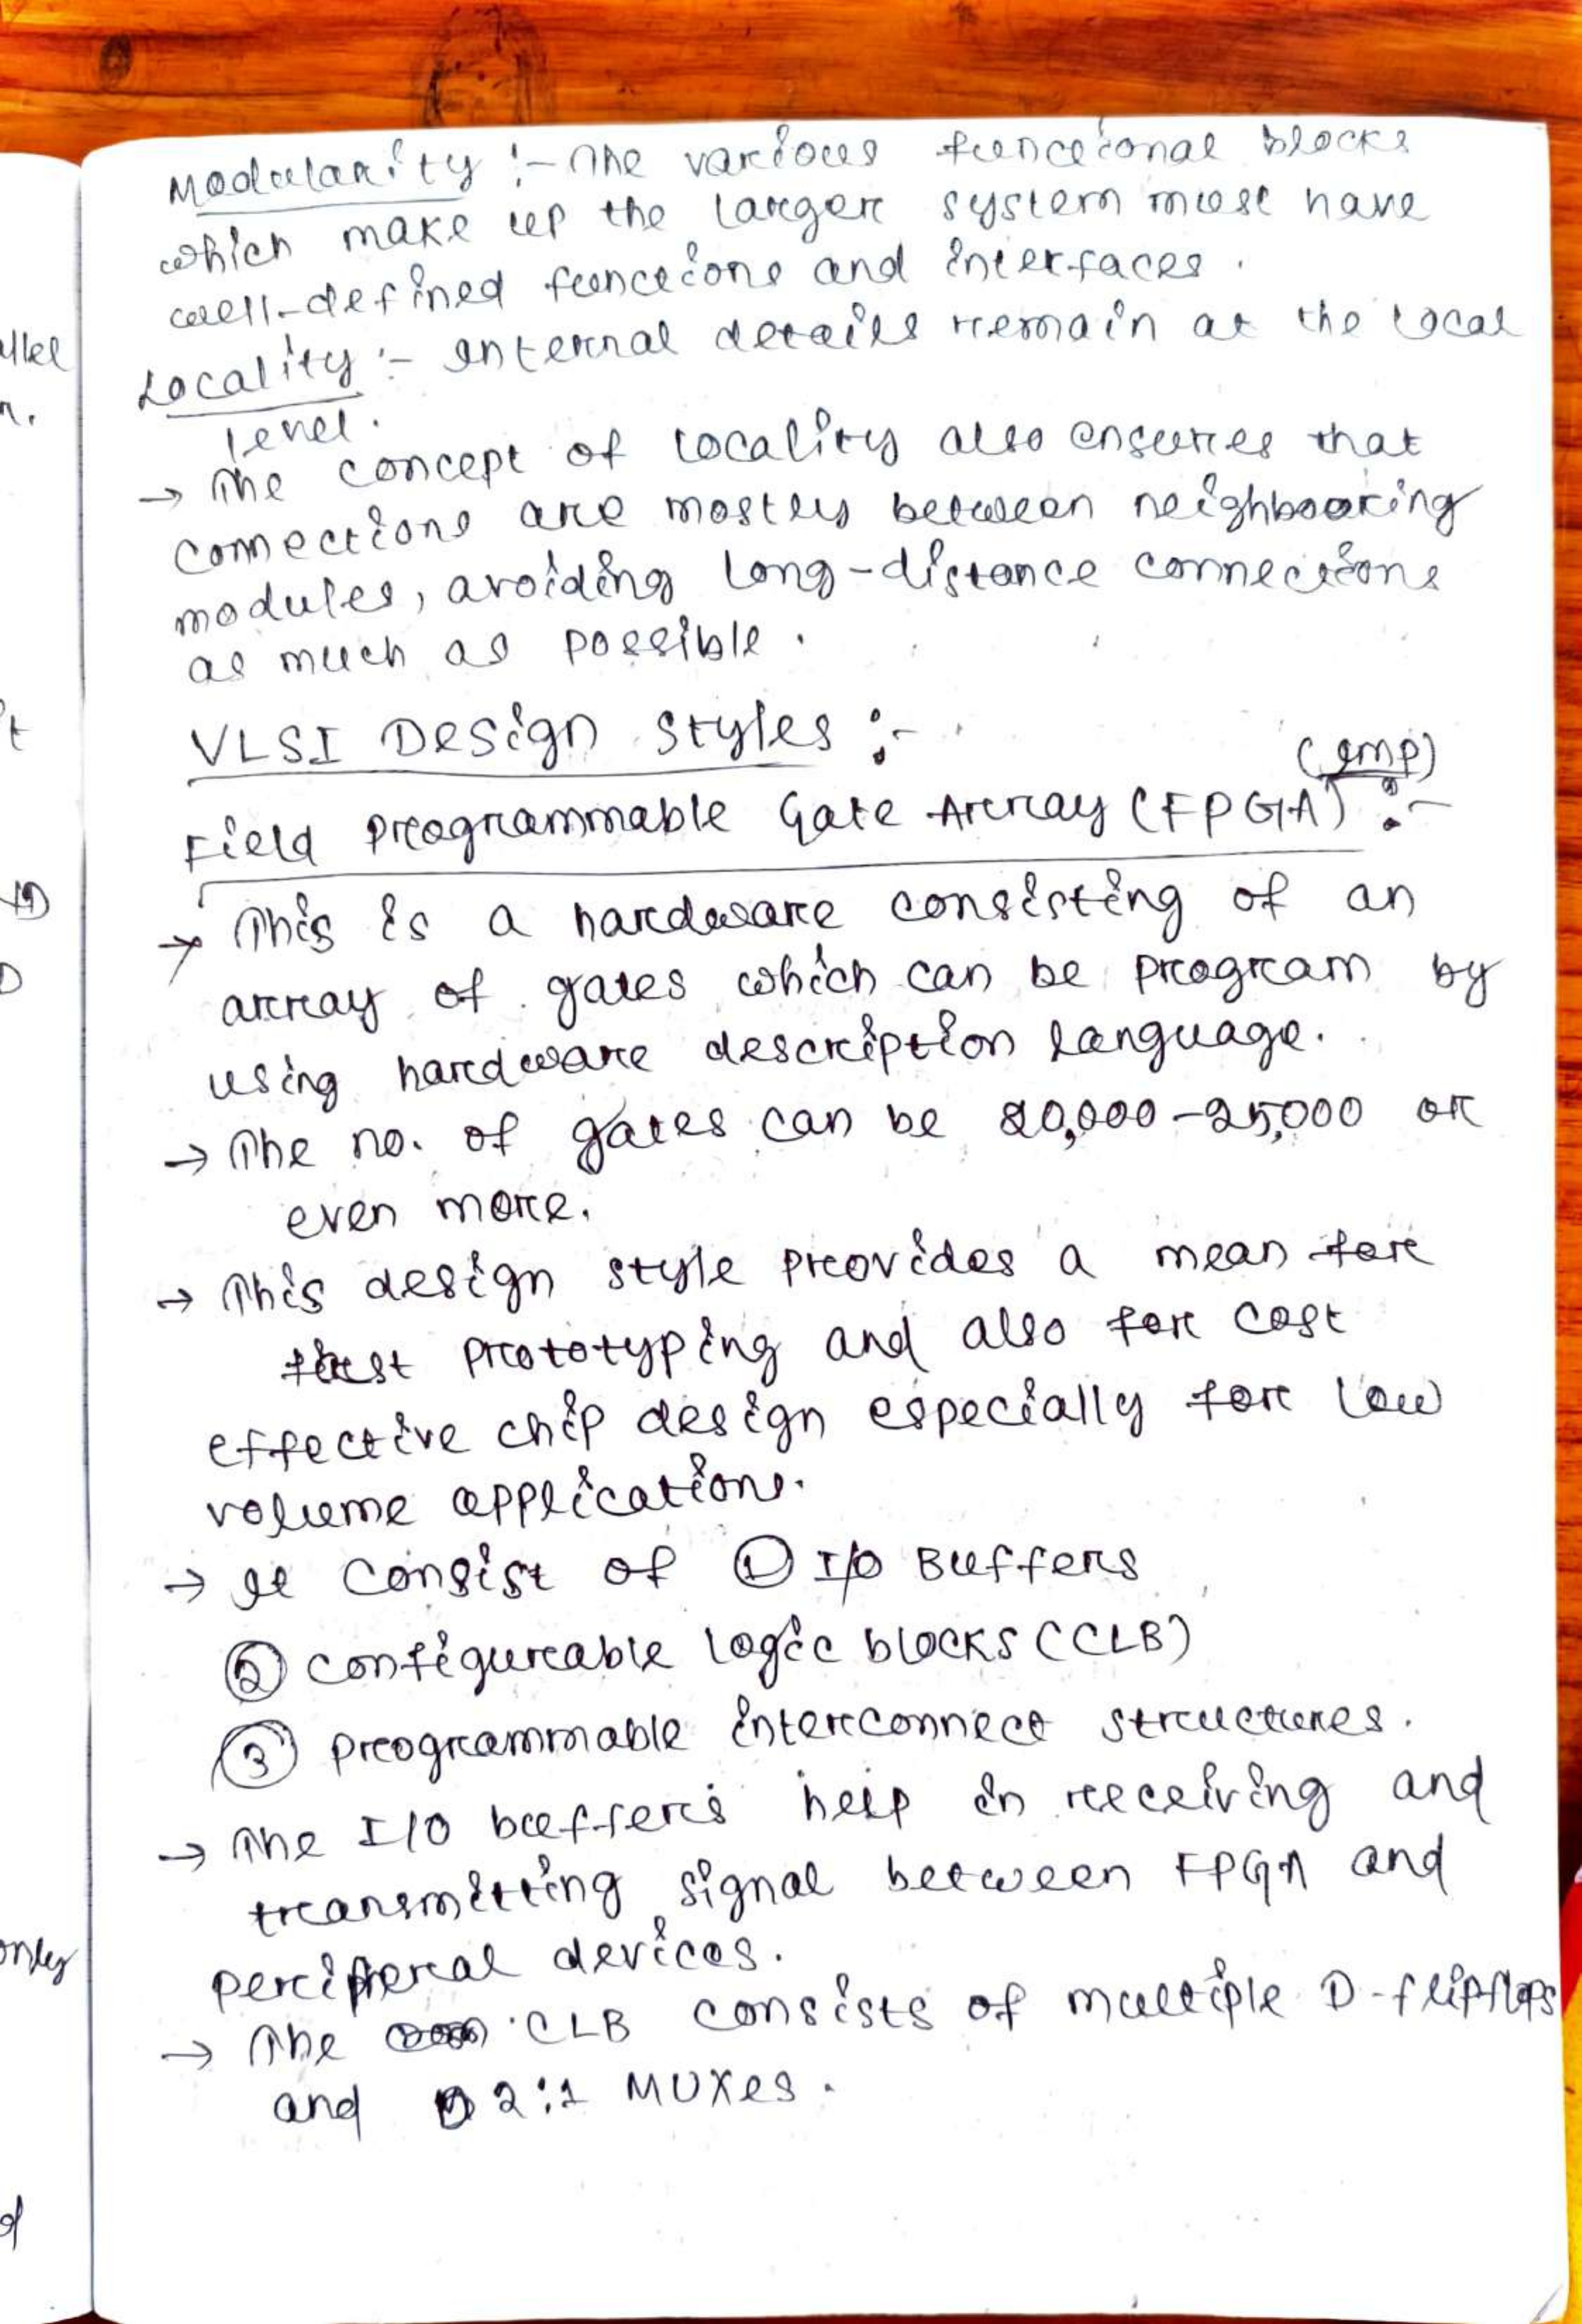 Modularity :- The various functional blocks
which make up the larger system must have
well-defined functions and interfaces.
Locality :- Internal details remain at the local
level.
→ The concept of locality also ensures that
connections are mostly between neighbouring
modules, avoiding long-distance connections
as much as possible.
VLSI Design Styles :-
(Imp)
Field Programmable Gate Array (FPGA) :-
→ This is a hardware consisting of an
array of gates which can be program by
using hardware description language.
→ The no. of gates can be 20,000-25,000 or
even more.
→ This design style provides a mean for
fast prototyping and also for cost
effective chip design especially for low
volume applications.
→ It consist of ① I/O Buffers
② configurable logic blocks (CLB)
③ programmable interconnect structures.
→ The I/O buffers help in receiving and
transmitting signal between FPGA and
peripheral devices.
→ The CLB consists of multiple D-flipflops
and 2:1 MUXes.
allel
n.
t
only
of